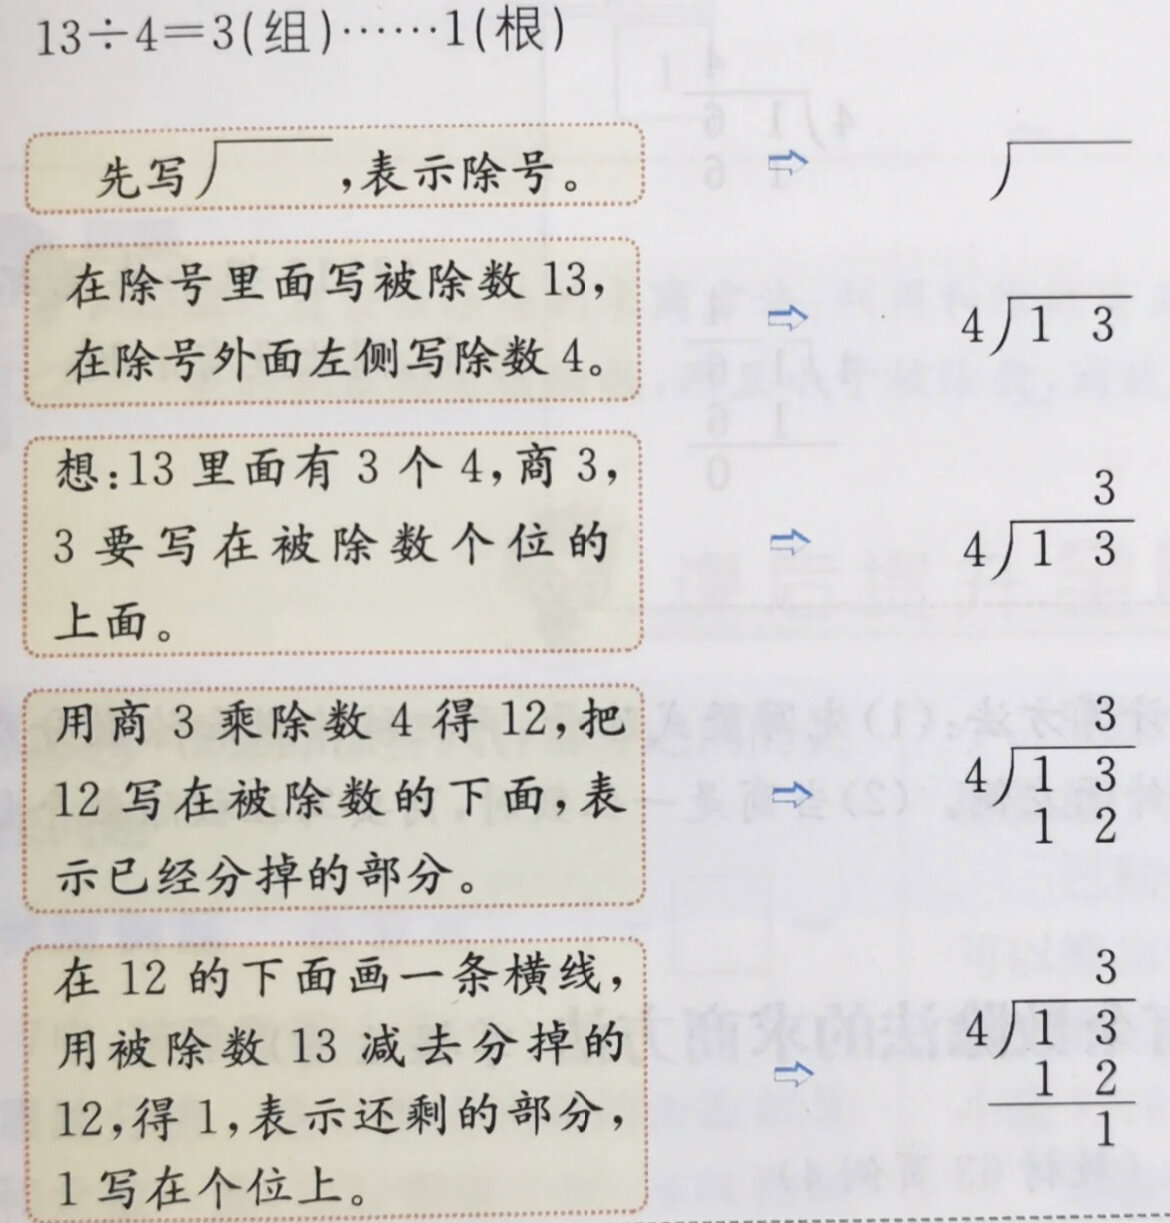 13÷4=3(组)……1(根)
先写    ,表示除号。
在除号里面写被除数 13,
在除号外面左侧写除数 4。
4 1 3
想:13 里面有 3 个 4,商 3,
3 要写在被除数个位的
上面。
3
4 1 3
用商 3 乘除数 4 得 12,把
12 写在被除数的下面,表
示已经分掉的部分。
3
4 1 3
1 2
在 12 的下面画一条横线,
用被除数 13 减去分掉的
12,得 1,表示还剩的部分,
1 写在个位上。
3
4 1 3
1 2
1